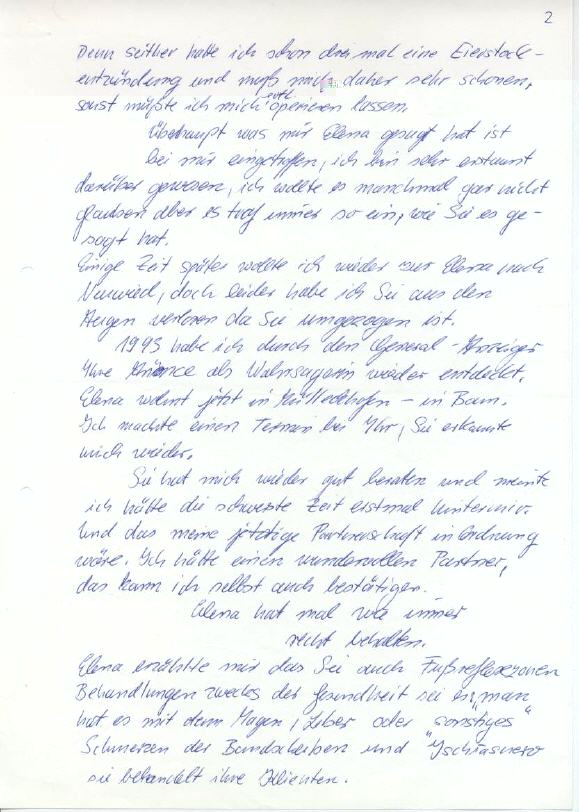 2
Denn seither hatte ich schon drei mal eine Eierstock-
entzündung und muß mich daher sehr schonen,
sonst müßte ich mich evtl. operieren lassen.
Überhaupt was mir Elena gesagt hat ist
bei mir eingetroffen, ich bin sehr erstaunt
darüber gewesen, ich wollte es manchmal gar nicht
glauben aber es traf immer so ein, wie Sie es ge-
sagt hat.
Einige Zeit später wollte ich wieder zur Elena nach
Neuwied, doch leider habe ich Sie aus den
Augen verloren da Sie umgezogen ist.
1993 habe ich durch den General-Anzeiger
Ihre Annonce als Wahrsagerin wieder entdeckt.
Elena wohnt jetzt in - in Bonn.
Ich machte einen Termin bei Ihr, Sie erkannte
mich wieder.
Sie hat mich wieder gut beraten und meinte
ich hätte die schwerste Zeit erstmal hinter mir.
Und das meine jetztige Partnerschaft in Ordnung
wäre. Ich hätte einen wundervollen Partner,
das kann ich selbst auch bestätigen.
Elena hat mal wie immer
recht behalten.
Elena erzählte mir das Sie auch Fußreflexzonen
Behandlungen zwecks der Gesundheit sei es, man
hat es mit dem Magen, Leber oder "sonstiges"
Schmerzen der Bandscheiben und "Ischiasnerv
sie behandelt ihre Klienten.